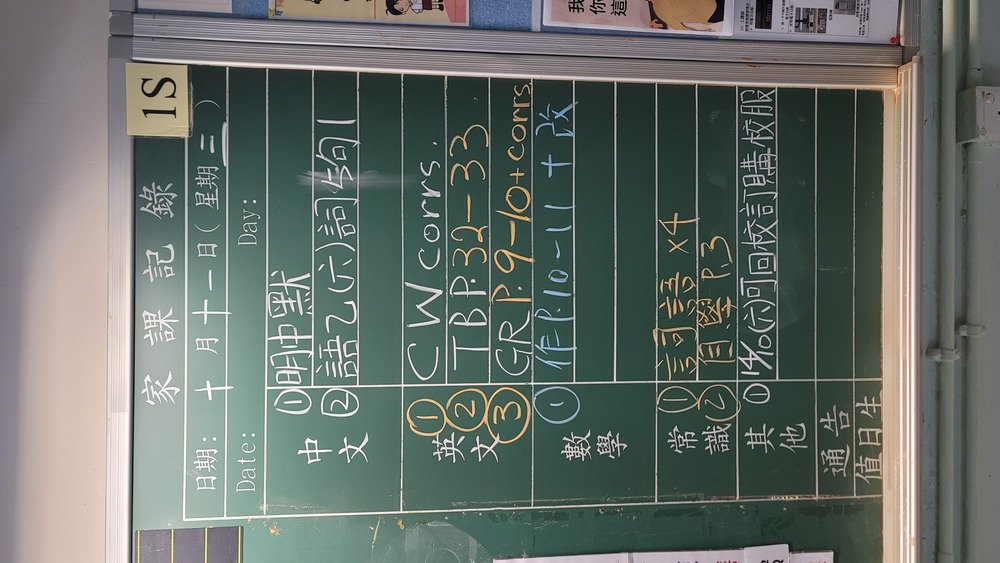 1S
家課記錄
日期：十月十一日(星期三)
Date: Day:
中文
①明中默
②語乙(六)詞句1
英文
①CW corrs.
②TB P.32-33
③GR P.9-10+corrs.
數學
①作P.10-11+改
常識
①詞語x4
②值學P.3
其他
①14/10(六)可回校訂購校服
通告
值日生